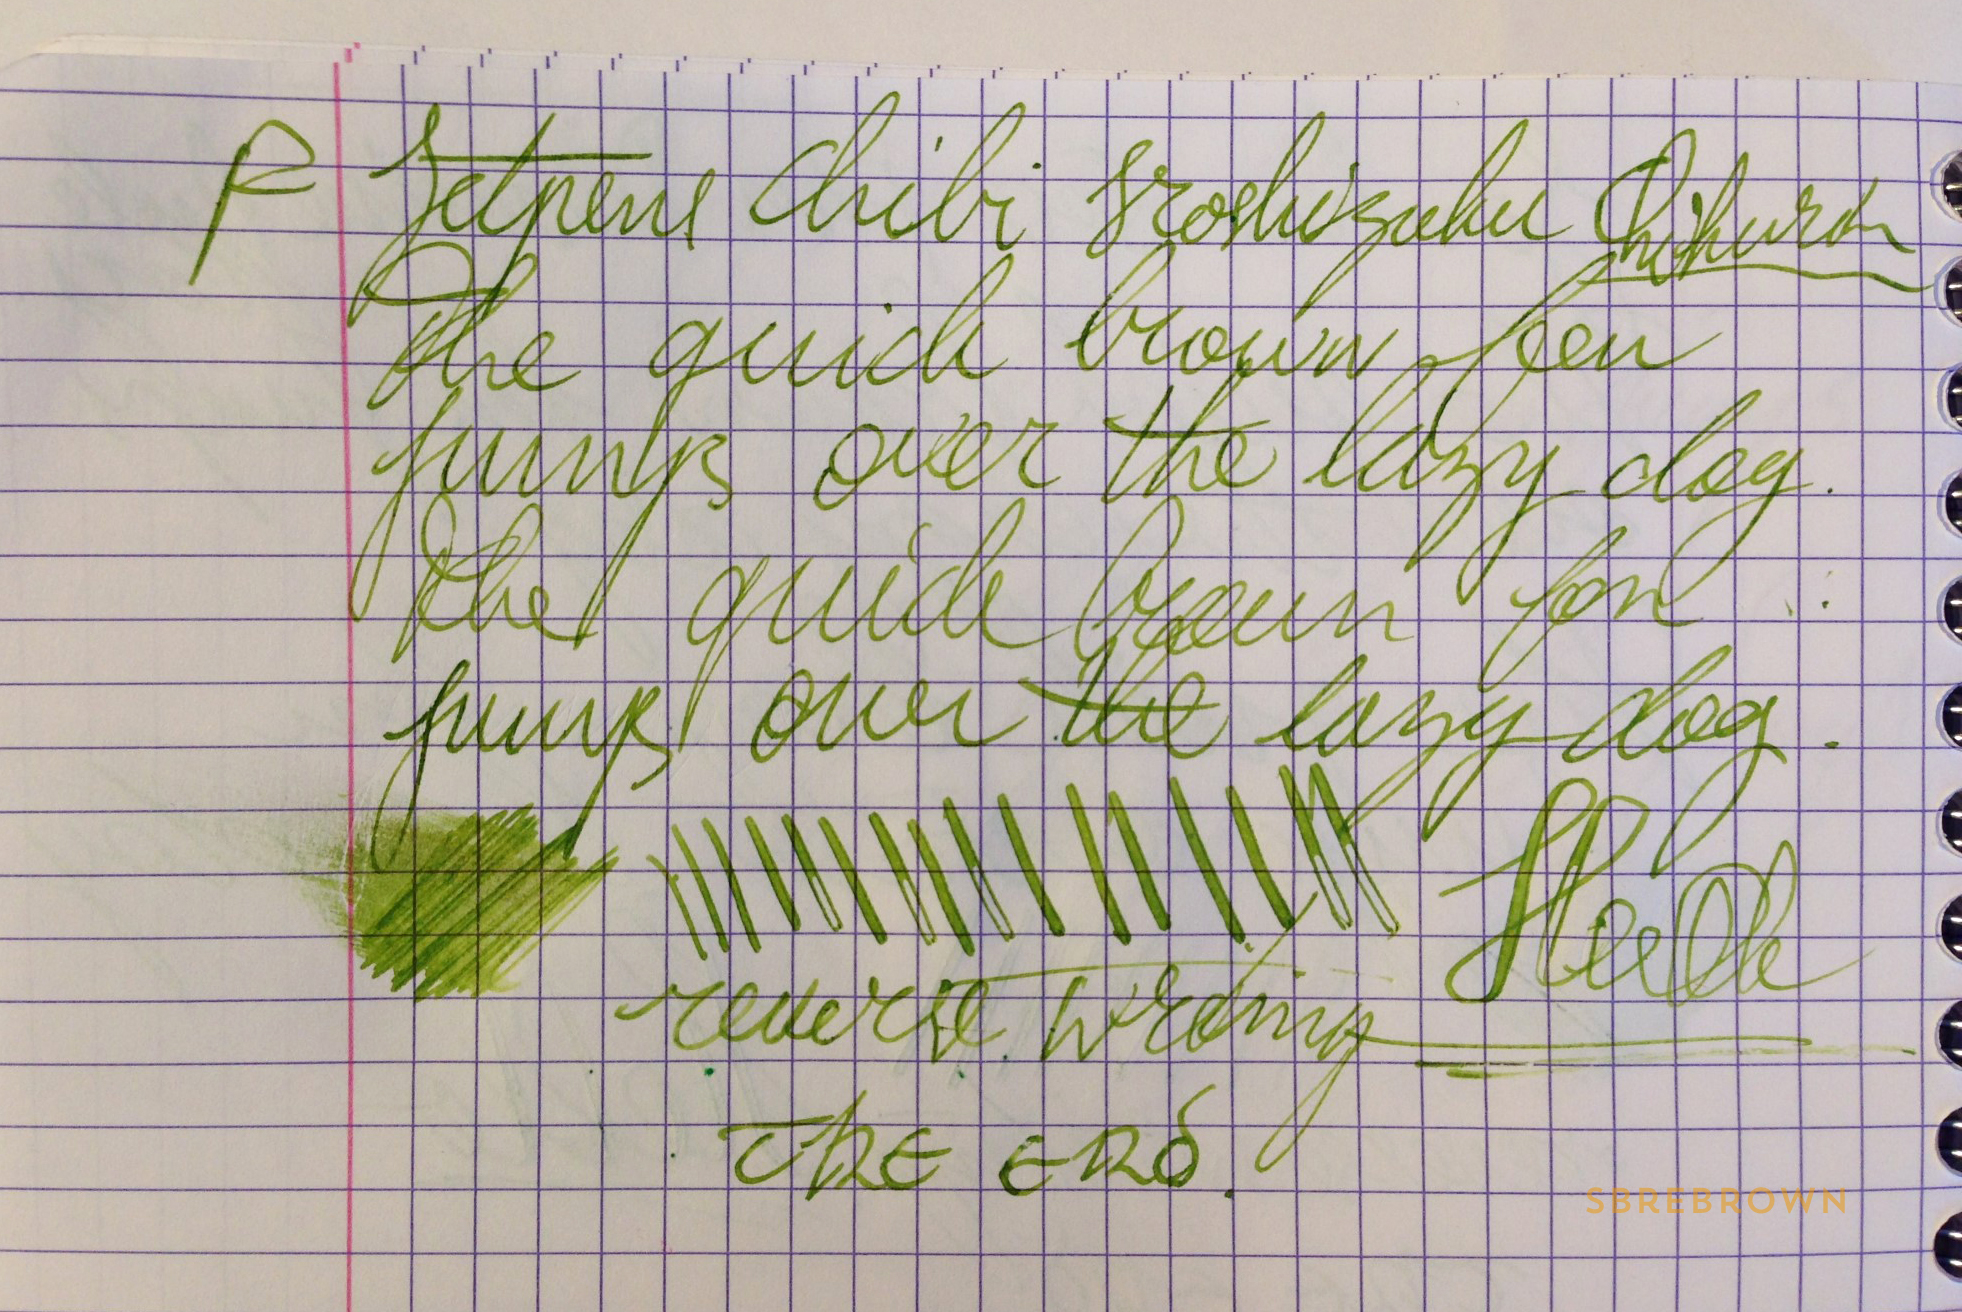 F Jetpens Chibi Iroshizuku Chikurin
The quick brown fox
jumps over the lazy dog.
The quick brown fox
jumps over the lazy dog.
reverse writing
The End.
SBREBROWN